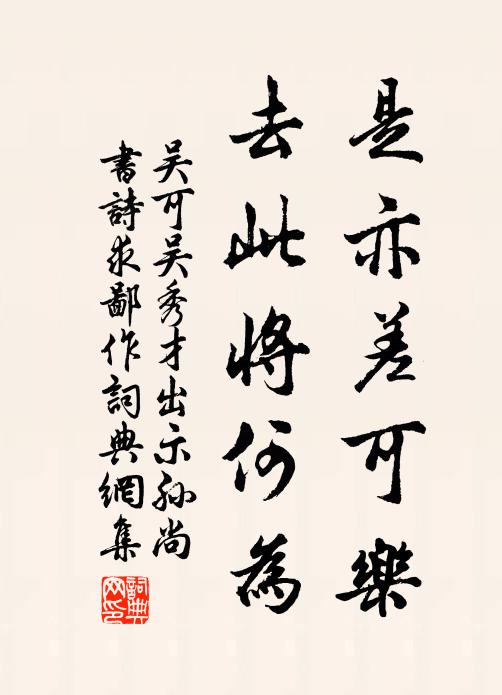 是亦差可樂
去此將何為
吳可吳秀才出示孫尚
書詩求鄙作詞典網集
詞典
网印